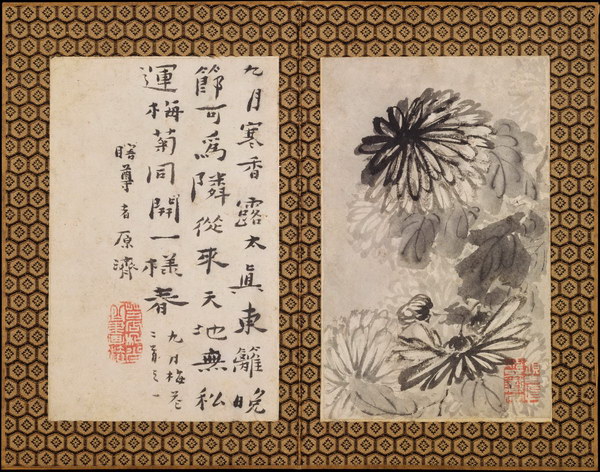 九月寒香露太真東籬晚
節可爲隣從來天地無私
運梅菊同開一樣春
九月梅花
首之一
瞎尊者原濟